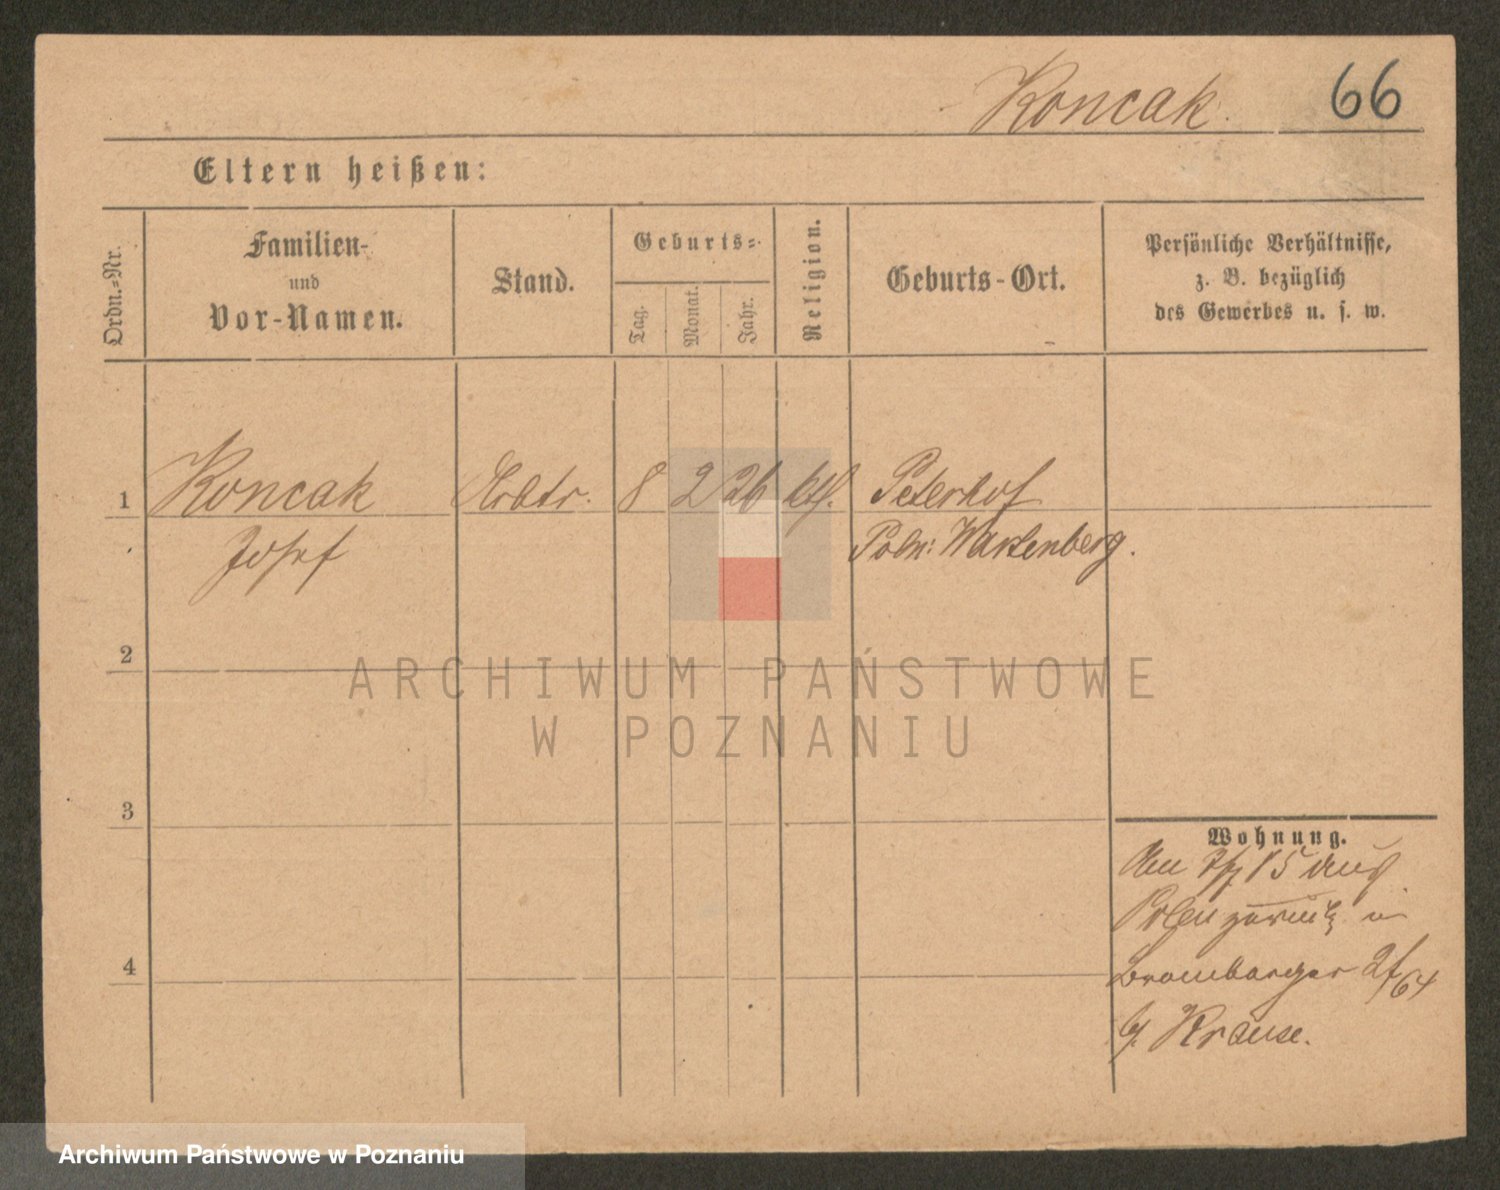 Koncak. 66
Eltern heißen:
Ordn.-Nr.
Familien-
und
Vor-Namen.
Stand.
Geburts-
Tag.
Monat.
Jahr.
Religion.
Geburts-Ort.
Persönliche Verhältnisse,
z. B. bezüglich
des Gewerbes u. s. w.
1 Koncak Arbtr. 8 2 26 kth. Peterhof
Josef Poln: Wartenberg.
2
ARCHIWUM PAŃSTWOWE
W POZNANIU
3
Wohnung.
Am 15 aus
Polen zurück n
4
Bromberger 64
b/ Krause.
Archiwum Państwowe w Poznaniu